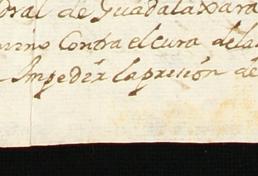 dral de Guadalaxara
Contra el cura dela
Impedir la prision de